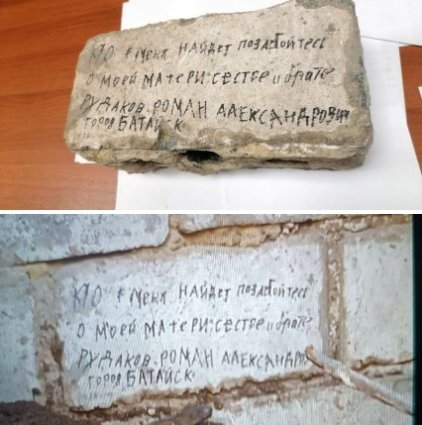 КТО Е МЕНЯ НАЙДЕТ ПОЗАБОЙТЕСЬ
О МОЕЙ МАТЕРИ: СЕСТРЕ и брате
РУДАКОВ. РОМАН АЛЕКСАНДРОВИЧ
ГОРОД БАТАЙСК
КТО Е МЕНЯ НАЙДЕТ ПОЗАБОЙТЕСЬ
О МОЕЙ МАТЕРИ: СЕСТРЕ и брате
РУДАКОВ. РОМАН АЛЕКСАНДРО
ГОРОД БАТАЙСК